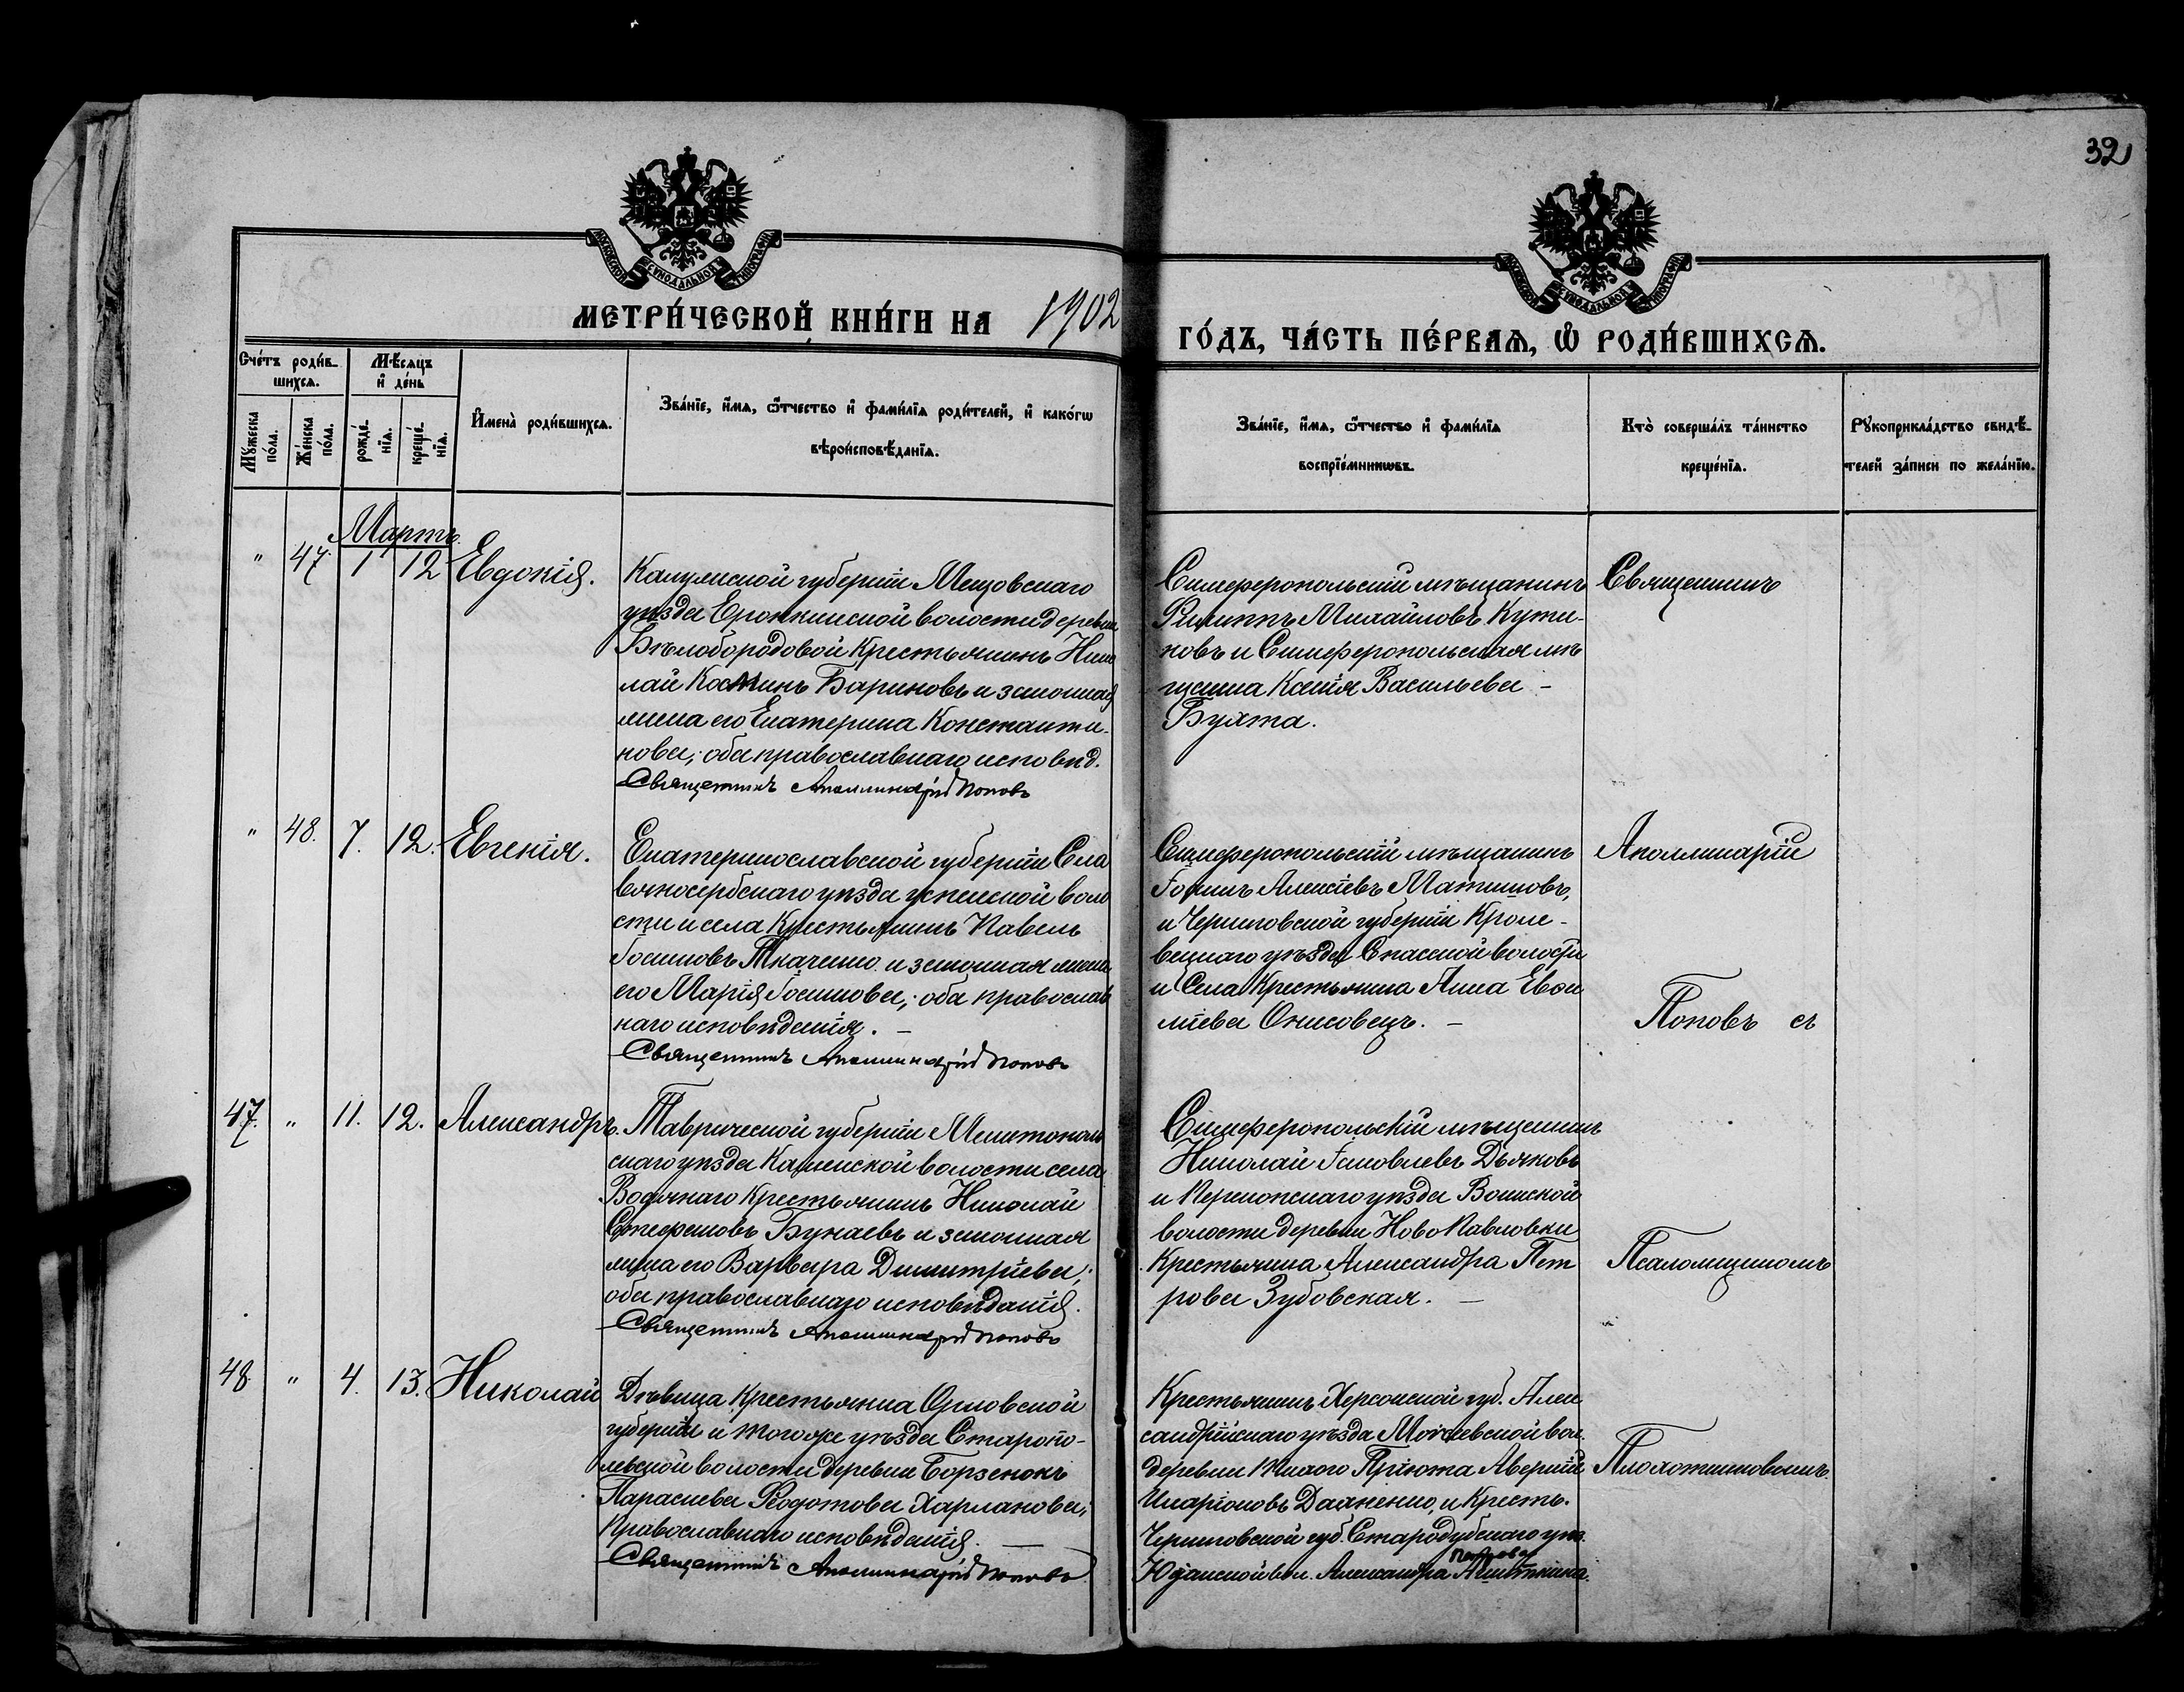 32
МОСКОВСКОЙ СѴНОДАЛЬНОЙ ТИПОГРАФІИ
МОСКОВСКОЙ СѴНОДАЛЬНОЙ ТИПОГРАФІИ
МЕТРИ́ЧЕСКОЙ КНИ́ГИ НА 1902
ГО́ДЪ, ЧА́СТЬ ПЕ́РВАѦ, Ѡ РОДИ́ВШИХСѦ.
Сче́тъ роди́в-
шихсѧ.
Мꙋ́жеска по́ла.
Же́нска по́ла.
Мѣ́сѧцъ
и҆ де́нь
рожде́-
нїѧ.
креще́-
нїѧ.
И҆мена̀ роди́вшихсѧ.
Зва́нїе, и҆́мѧ, ѻ҆́тчество и҆ фами́лїѧ роди́телей, и҆ како́гѡ
вѣроисповѣ́данїѧ.
Зва́нїе, и҆́мѧ, ѻ҆́тчество и҆ фами́лїѧ
воспрїе́мникѡвъ.
Кто̀ соверша́лъ та́инство
креще́нїѧ.
Рꙋкоприкла́дство свидѣ́-
телей за́писи по жела́нїю.
Мартъ
" 47. 1 12 Евдокія.
Калужской губерніи Мещовскаго
уѣзда волости деревни
Бѣлобородовой Крестьянинъ Нико
лай Косминъ Бариновъ и законная
жена его Екатерина Константи-
нова; оба православнаго исповѣд.
Священникъ Аполлинарій Поповъ
Симферопольскій мѣщанинъ
Филиппъ Михайловъ Кути-
новъ и Симферопольская мѣ
щанка Ксенія Васильева -
Бухта.
Священникъ
" 48. 7. 12. Евгенія.
Екатеринославской губерніи Сла
вяносербскаго уѣзда Успенской воло
сти и села Крестьянинъ Павелъ
Іосифовъ Ткаченко и законная жена
его Марія Іосифова; оба православ
наго исповѣданія. -
Священникъ Аполлинарій Поповъ
Симферопольскій мѣщанинъ
Алексіевъ
и Черниговской губерніи Кроле-
вецкаго уѣзда Спасской волости
и Села Крестьянка Анна
Онисовецъ. -
Аполлинарій
Поповъ съ
47. " 11. 12. Александръ.
Таврической губерніи Мелитополь
скаго уѣзда Каменской волости села
Водянаго Крестьянинъ Николай
Стефановъ Бунаевъ и законная
жена его Варвара Димитріева;
оба православнаго исповѣданія.
Священникъ Аполлинарій Поповъ
Симферопольскій мѣщанинъ
Николай Іаковлевъ Дьячковъ
и Перекопскаго уѣзда Воинской
волости деревни Ново Павловки
Крестьянка Александра Пет
рова Зубовская. -
Псаломщикомъ
48 " 4. 13. Николай
Дѣвица Крестьянка Орловской
губерніи и того же уѣзда
волости деревни Борзенокъ
Параскева Ѳеодотова Харланова;
Православнаго исповѣданія. -
Священникъ Аполлинарій Поповъ
Крестьянинъ Херсонской губ. Алек
сандрійскаго уѣзда вол.
деревни Пріюта Аверкій
Иларіоновъ и Крестьян.
Черниговской губ. Стародубскаго уѣз.
вол. Александра Петрова
Плохотниковымъ.